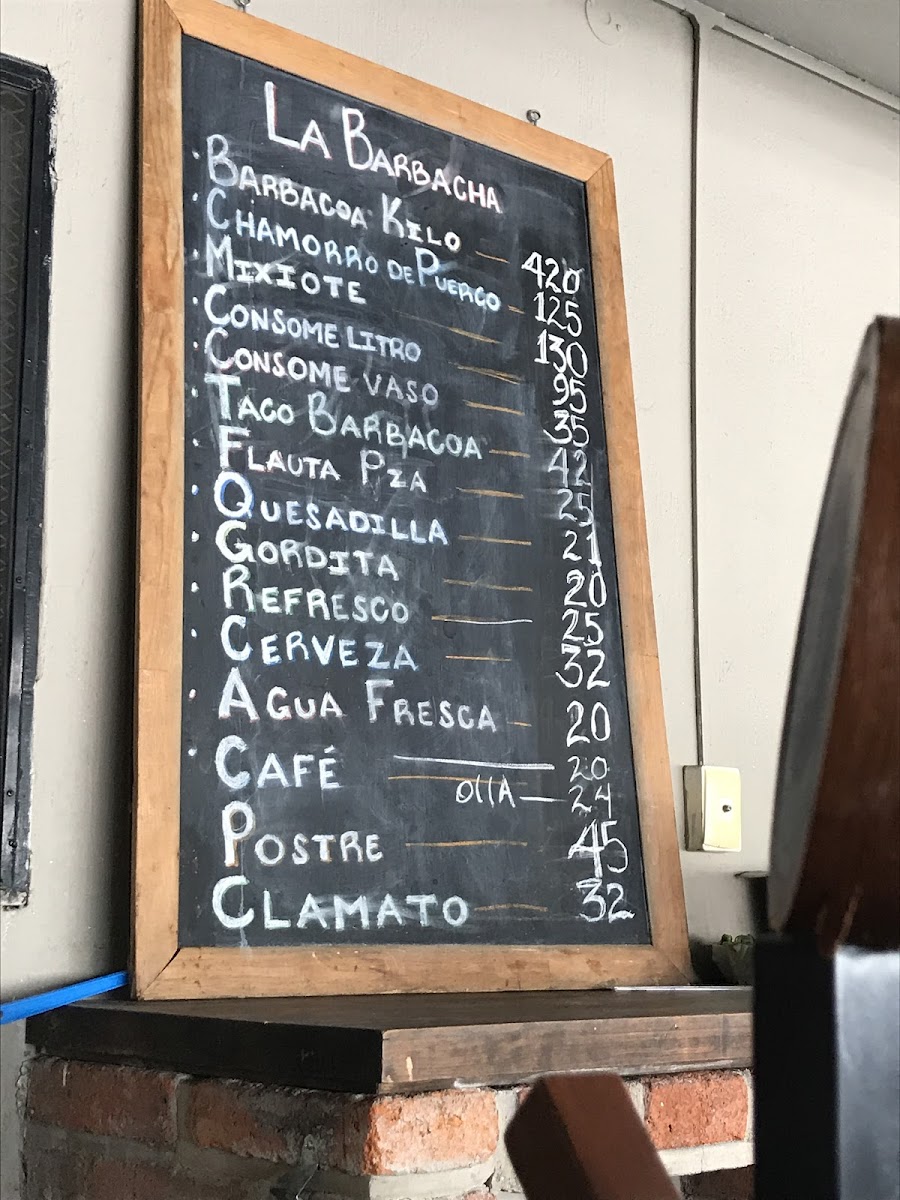 La Barbacha
· Barbacoa Kilo — 420
· Chamorro de Puerco — 125
· Mixiote — 130
· Consome Litro — 95
· Consome vaso — 35
· Taco Barbacoa — 42
· Flauta Pza — 25
· Quesadilla — 21
· Gordita — 20
· Refresco — 25
· Cerveza — 32
· Agua Fresca — 20
· Café — 20
olla — 24
Postre — 45
Clamato — 32